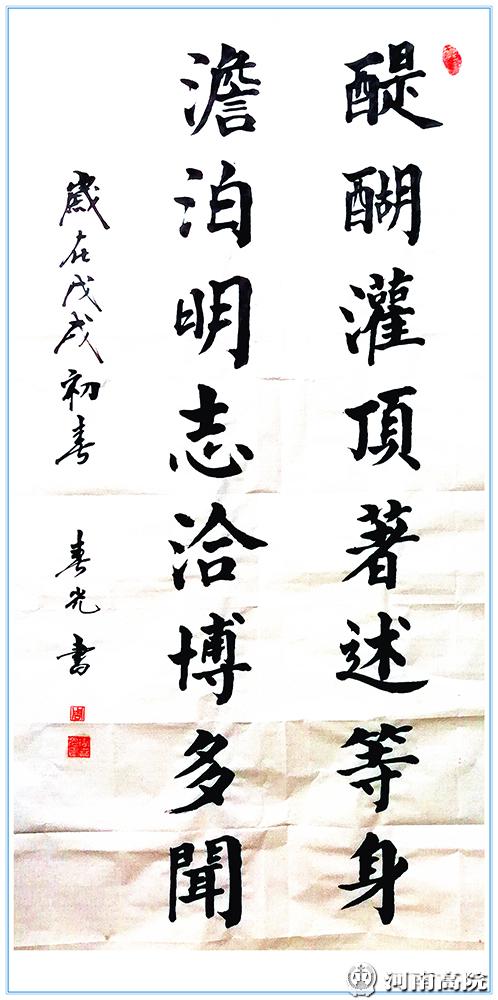 醍醐灌頂著述等身
澹泊明志洽博多聞
歲在戊戌初春
春光書
河南高院